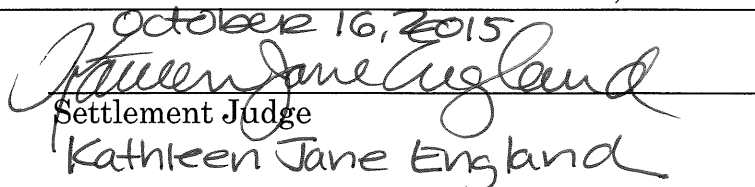 October 16, 2015
Kathleen Jane England
Settlement Judge
Kathleen Jane England